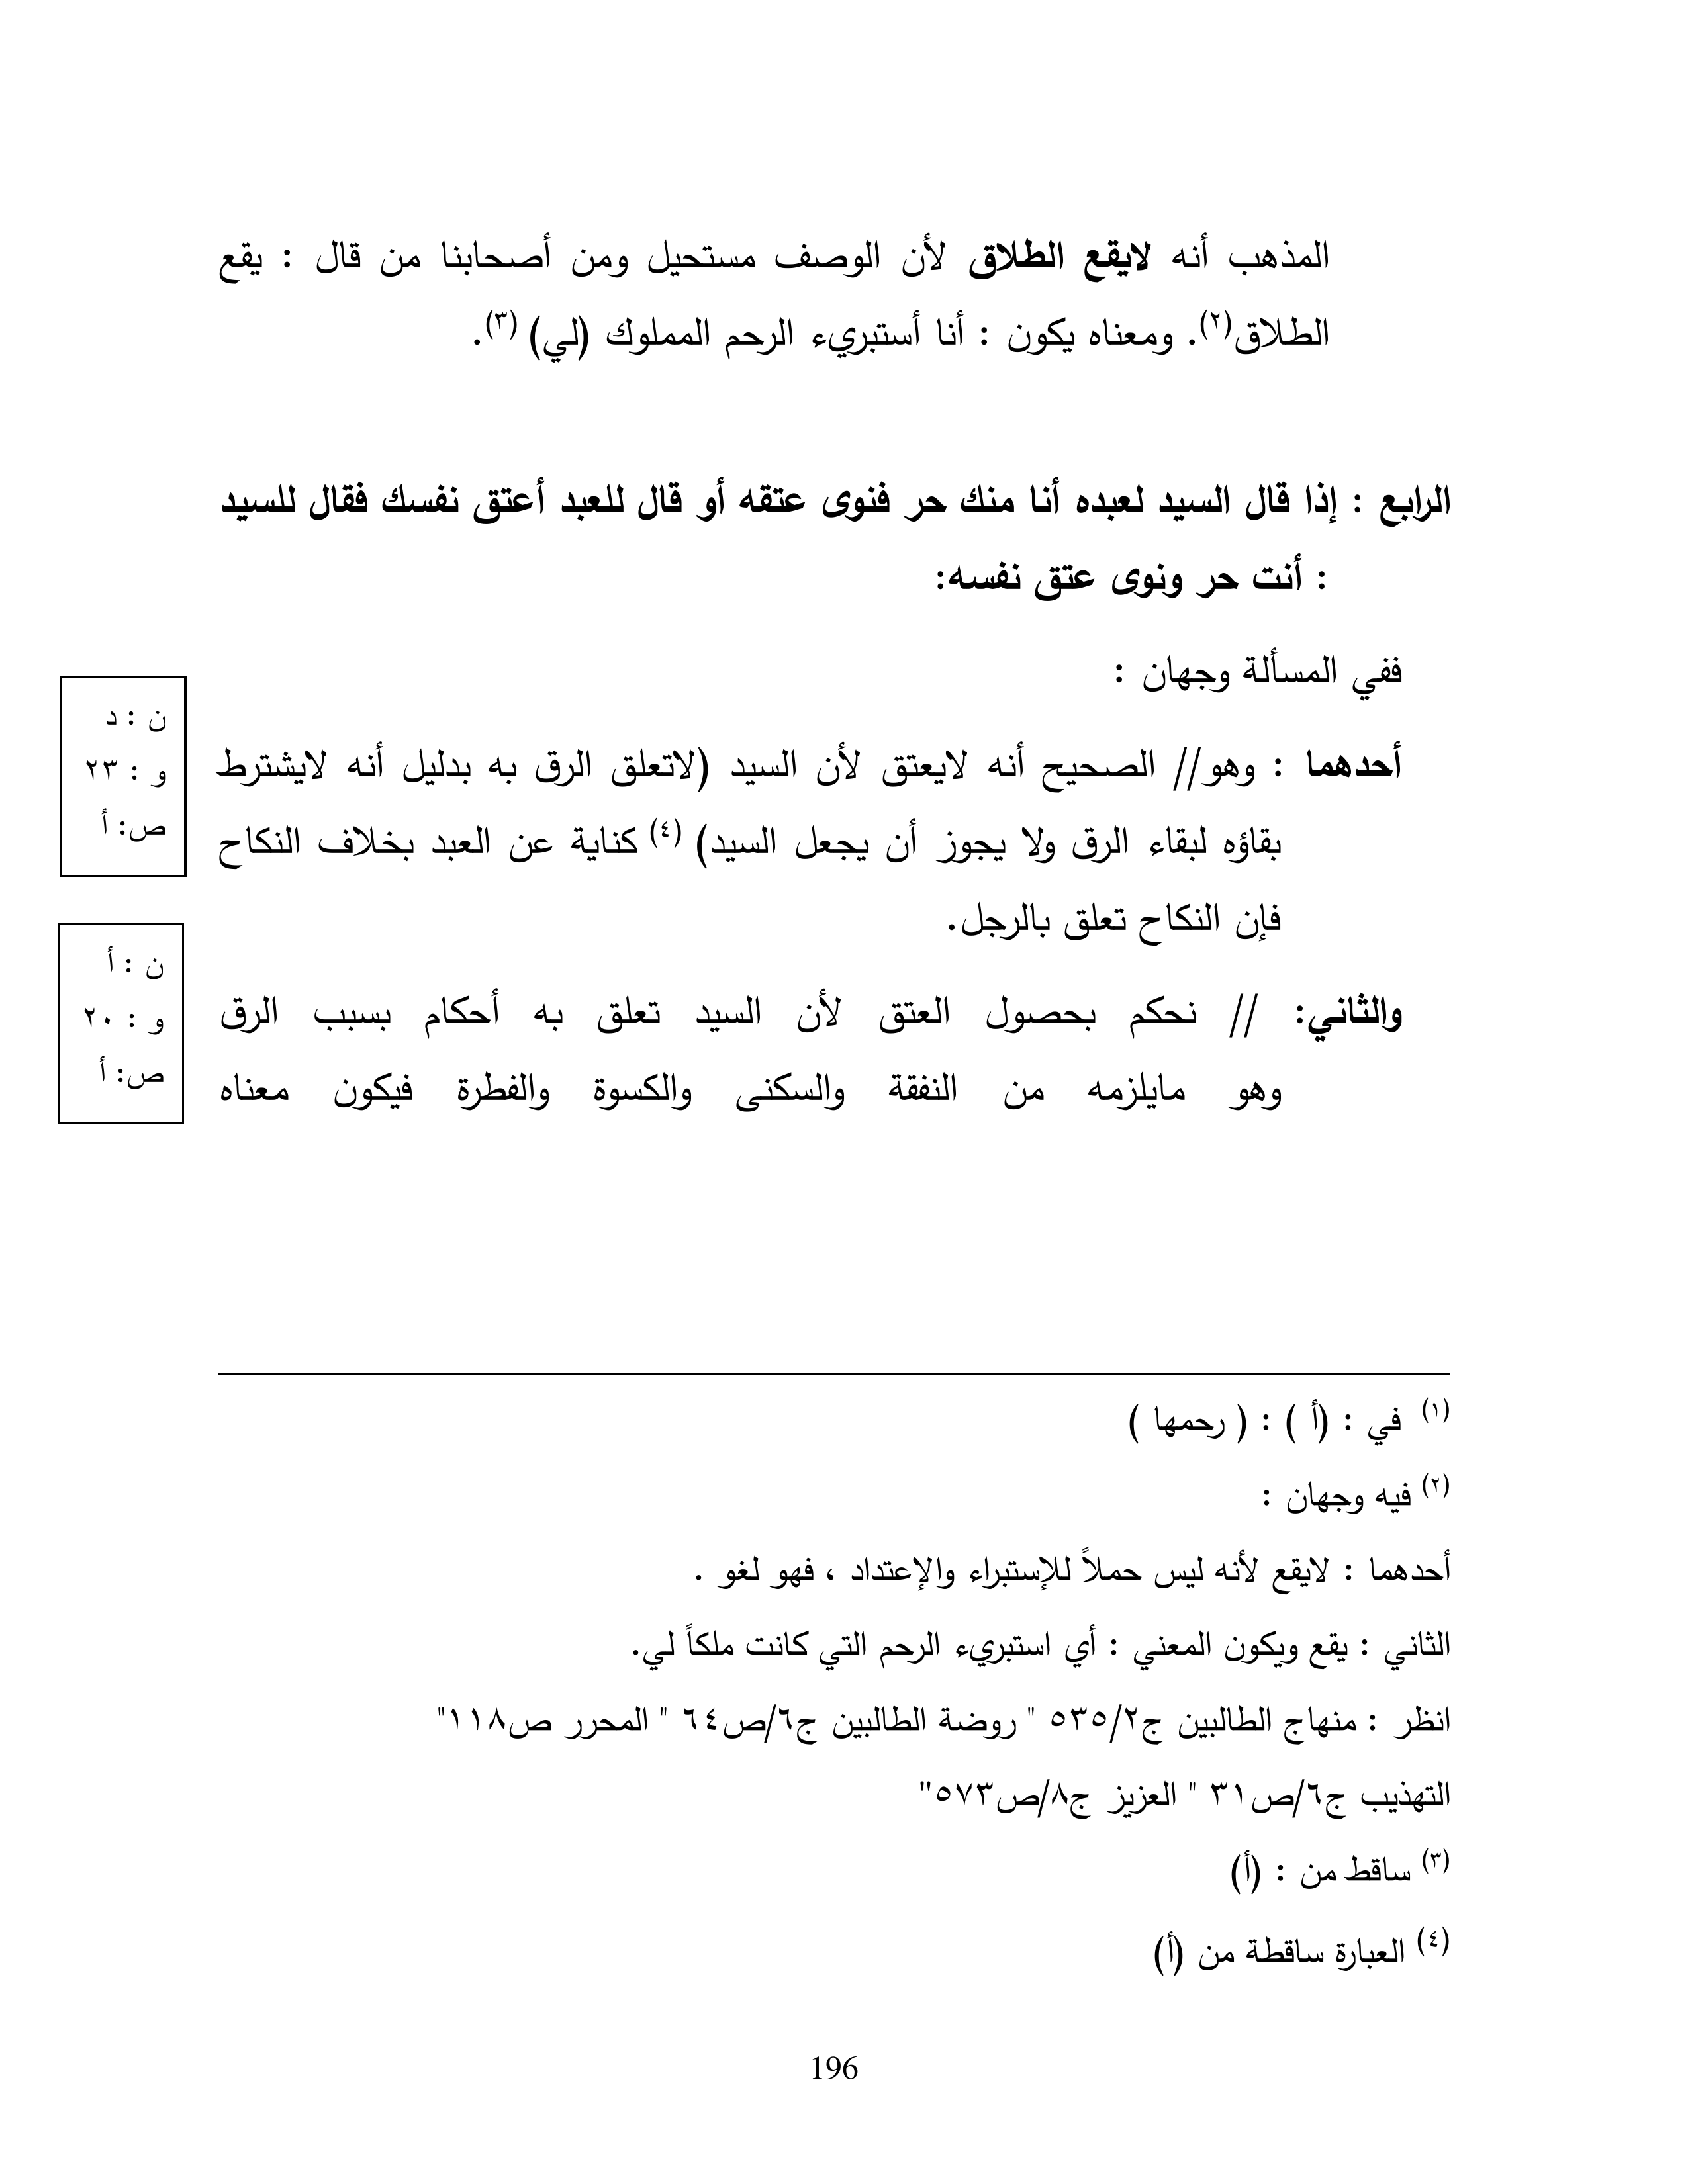 المذهب أنه لايقع الطلاق لأن الوصف مستحيل ومن أصحابنا من قال : يقع
الطلاق(٢). ومعناه يكون : أنا أستبريء الرحم المملوك (لي) (٣).
الرابع : إذا قال السيد لعبده أنا منك حر فنوى عتقه أو قال للعبد أعتق نفسك فقال للسيد
: أنت حر ونوى عتق نفسه:
ففي المسألة وجهان :
أحدهما : وهو// الصحيح أنه لايعتق لأن السيد (لاتعلق الرق به بدليل أنه لايشترط
بقاؤه لبقاء الرق ولا يجوز أن يجعل السيد) (٤) كناية عن العبد بخلاف النكاح
فإن النكاح تعلق بالرجل.
ن : د
و : ٢٣
ص: أ
والثاني: // نحكم بحصول العتق لأن السيد تعلق به أحكام بسبب الرق
وهو مايلزمه من النفقة والسكنى والكسوة والفطرة فيكون معناه
ن : أ
و : ٢٠
ص: أ
(١) في : (أ ) : ( رحمها )
(٢) فيه وجهان :
أحدهما : لايقع لأنه ليس حملاً للإستبراء والإعتداد ، فهو لغو .
الثاني : يقع ويكون المعني : أي استبريء الرحم التي كانت ملكاً لي.
انظر : منهاج الطالبين ج٥٣٥/٢ " روضة الطالبين ج٦/ص٦٤ " المحرر ص١١٨"
التهذيب ج٦/ص٣١ " العزيز ج٨/ص٥٧٣"
(٣) ساقط من : (أ)
(٤) العبارة ساقطة من (أ)
196